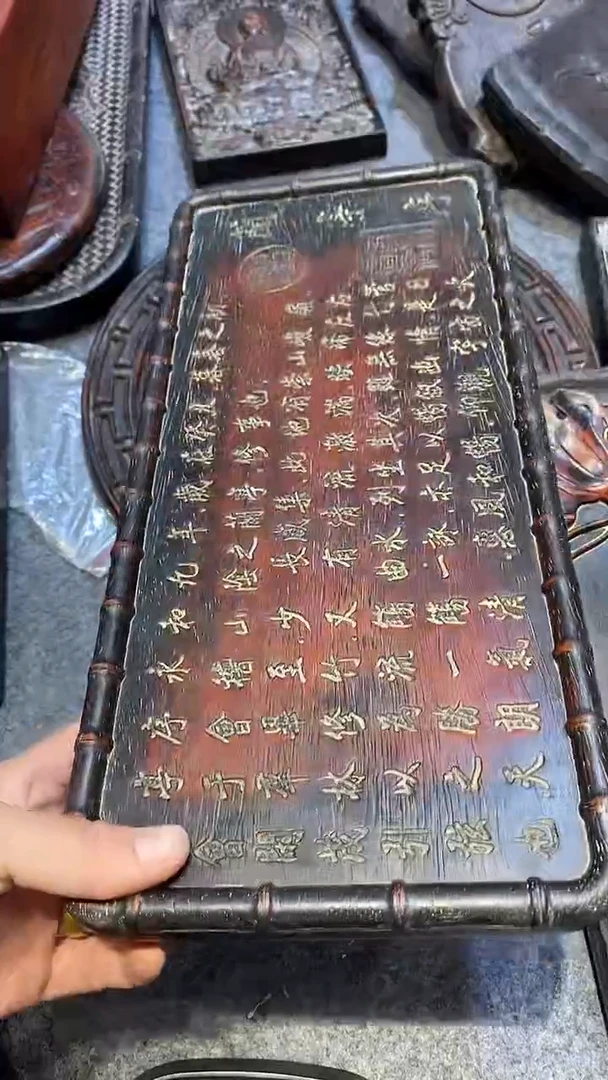 蘭亭序
亭序永和九年歲在癸丑暮春之初
會于會稽山陰之蘭亭修事也
畢至少長咸集此地有崇山峻
茂修竹又有清流激湍映左右
引以為流觴曲水列坐其次雖無絲竹
弦之盛一觴一詠亦足以暢敘幽情是日
也天朗氣清惠風和暢仰觀宇宙之大